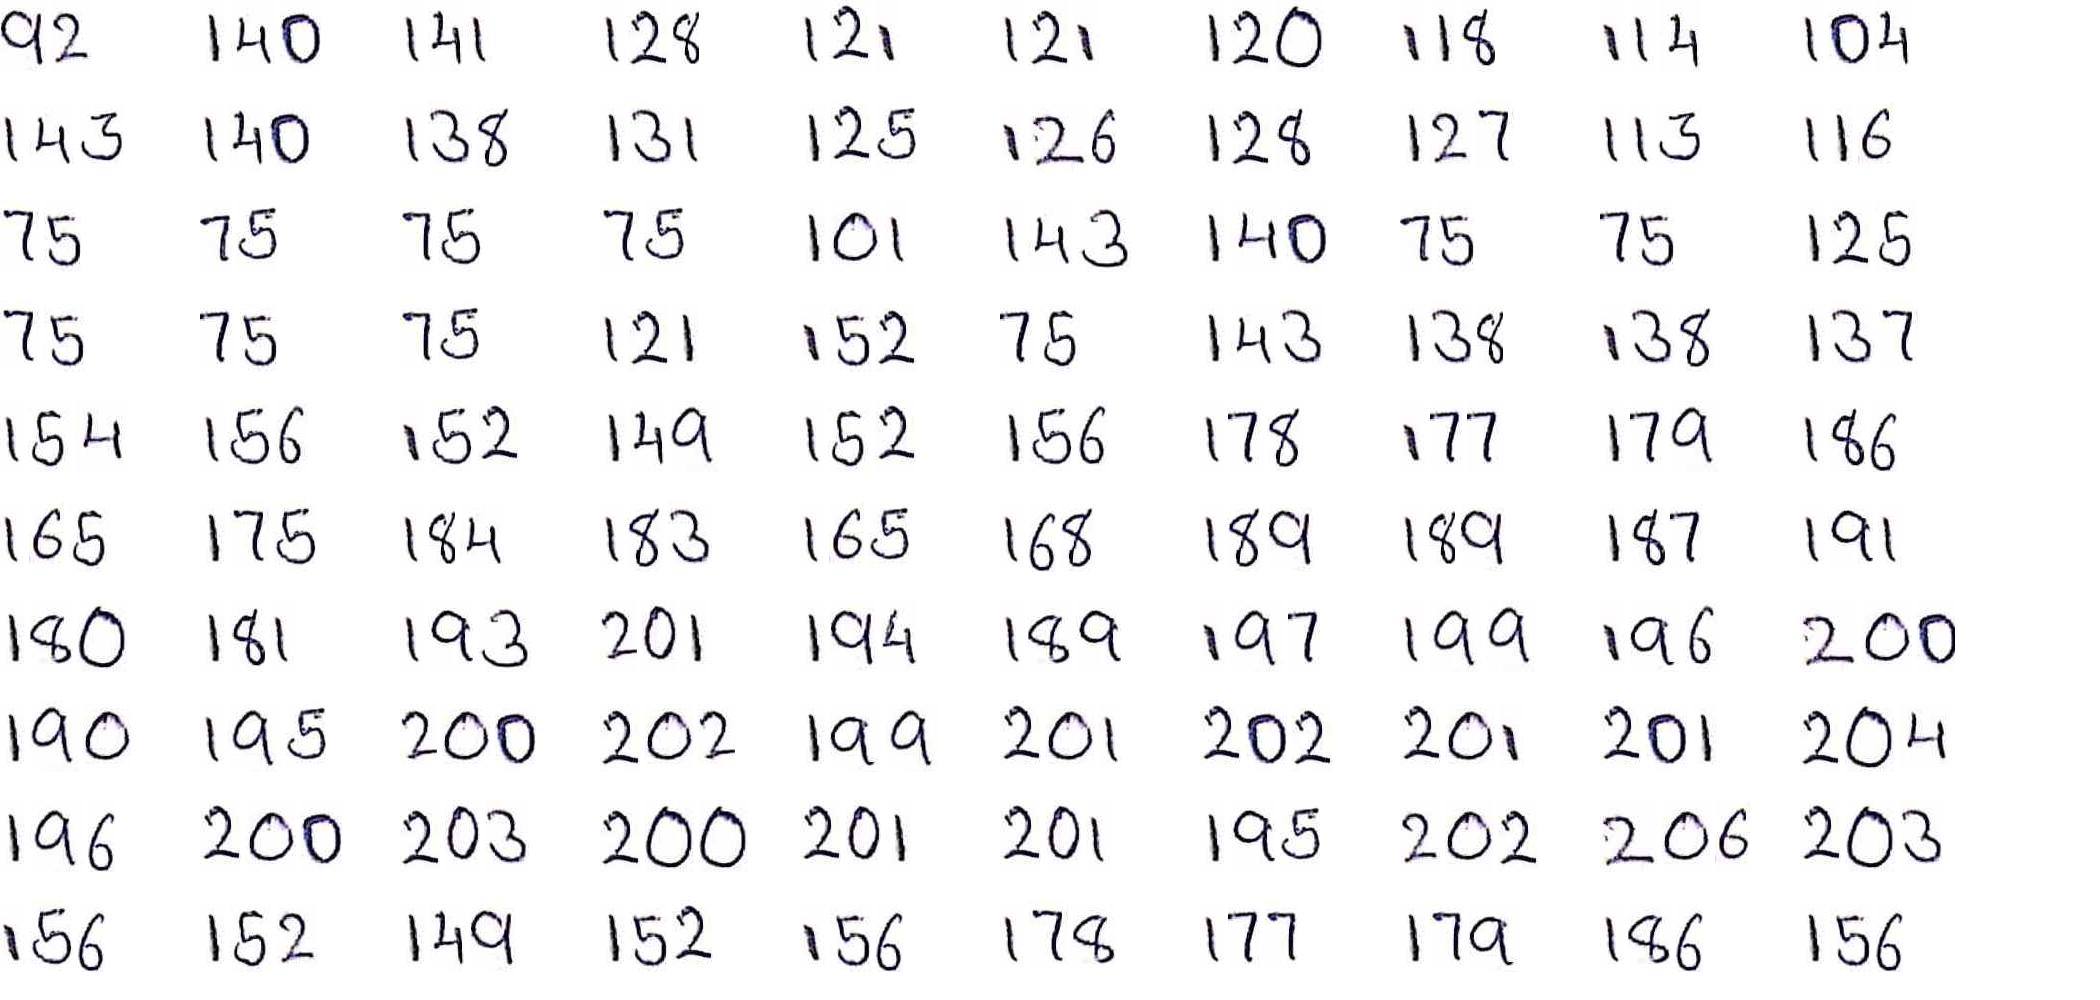 92 140 141 128 121 121 120 118 114 104
143 140 138 131 125 126 128 127 113 116
75 75 75 75 101 143 140 75 75 125
75 75 75 121 152 75 143 138 138 137
154 156 152 149 152 156 178 177 179 186
165 175 184 183 165 168 189 189 187 191
180 181 193 201 194 189 197 199 196 200
190 195 200 202 199 201 202 201 201 204
196 200 203 200 201 201 195 202 206 203
156 152 149 152 156 178 177 179 186 156